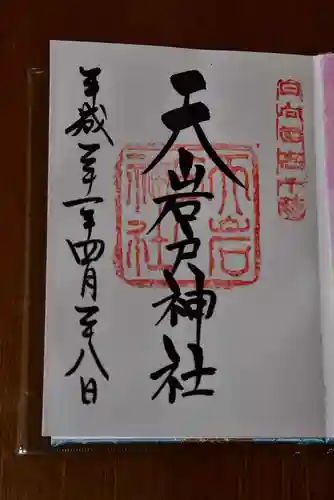 天岩戸神社
天岩戸神社
平成二十一年四月二十八日